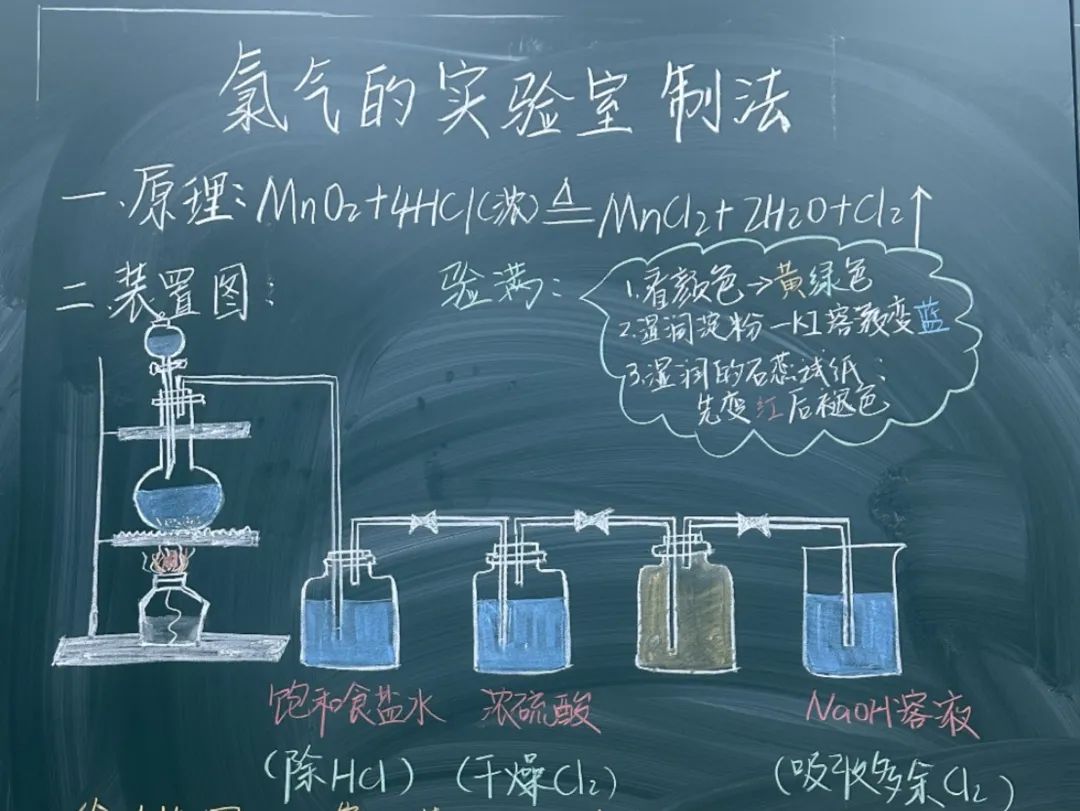 氯气的实验室制法
一.原理:MnO₂+4HCl(浓)≜MnCl₂+2H₂O+Cl₂↑
二.装置图:
验满:
1.看颜色→黄绿色
2.湿润淀粉-KI溶液变蓝
3.湿润的石蕊试纸:
先变红后褪色
饱和食盐水 浓硫酸 NaOH溶液
(除HCl) (干燥Cl₂) (吸收多余Cl₂)